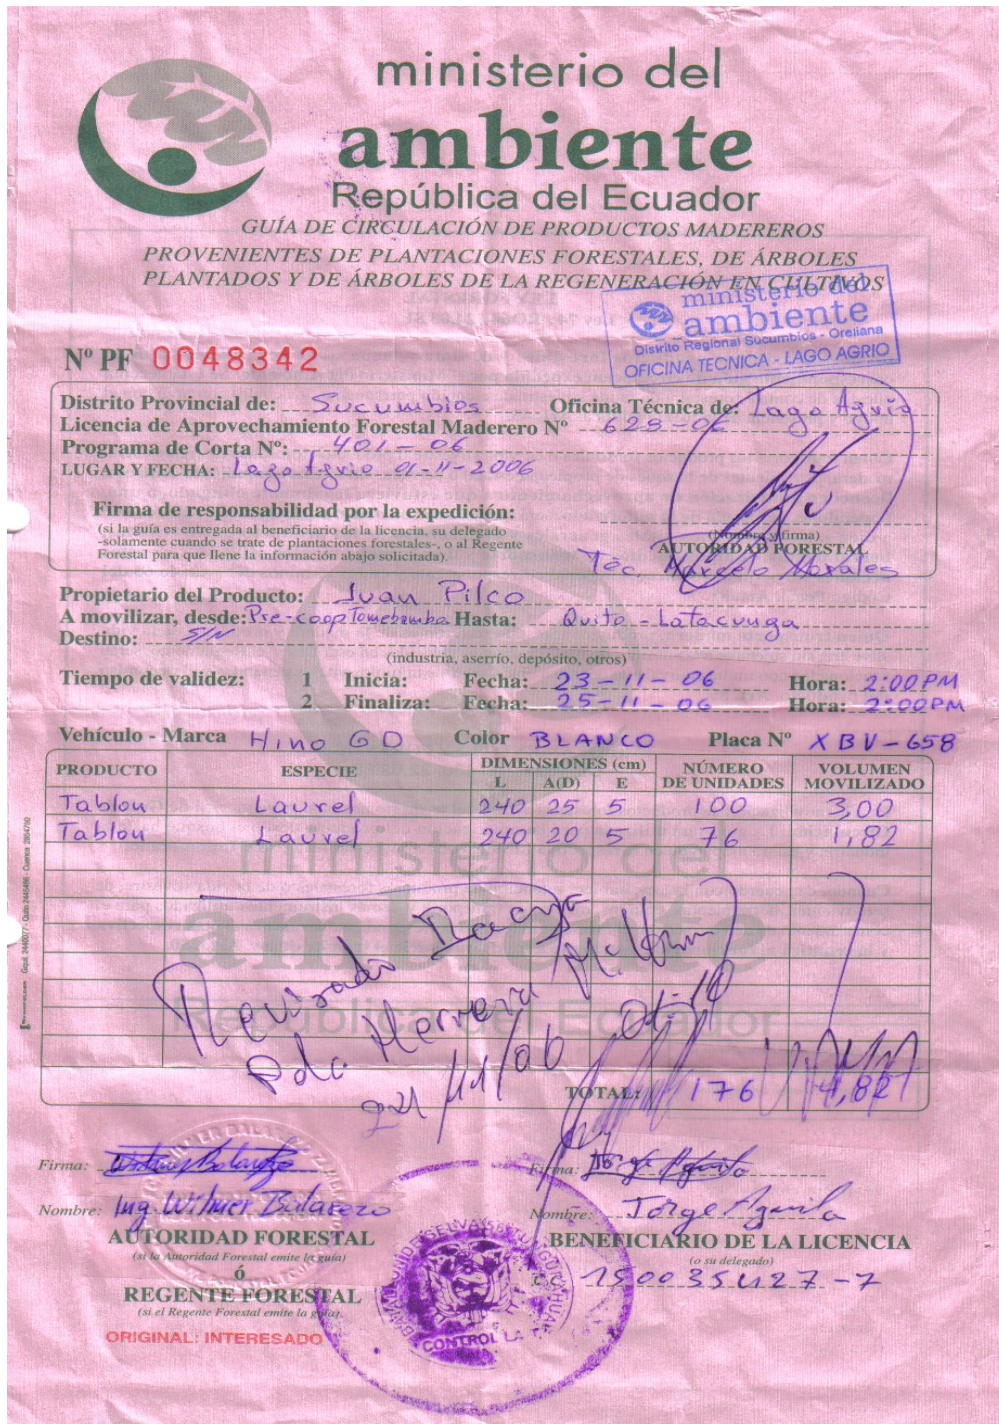 ministerio del
ambiente
República del Ecuador
GUÍA DE CIRCULACIÓN DE PRODUCTOS MADEREROS
PROVENIENTES DE PLANTACIONES FORESTALES, DE ÁRBOLES
PLANTADOS Y DE ÁRBOLES DE LA REGENERACIÓN EN CULTIVOS
ministerio del
ambiente
Distrito Regional Sucumbios - Orellana
OFICINA TECNICA - LAGO AGRIO
Nº PF 0048342
Distrito Provincial de: Sucumbios Oficina Técnica de: Lago Agrio
Licencia de Aprovechamiento Forestal Maderero Nº 628-06
Programa de Corta Nº: 401-06
LUGAR Y FECHA: Lago Agrio 01-11-2006
Firma de responsabilidad por la expedición:
(si la guía es entregada al beneficiario de la licencia, su delegado
-solamente cuando se trate de plantaciones forestales-, o al Regente
Forestal para que llene la información abajo solicitada).
(Nombre y firma)
AUTORIDAD FORESTAL
Téc. Marcelo Morales
Propietario del Producto: Juan Pilco
A movilizar, desde: Pre-coop Tomebamba Hasta: Quito - Latacunga
Destino: S/N
(industria, aserrío, depósito, otros)
Tiempo de validez: 1 Inicia: Fecha: 23-11-06 Hora: 2:00 PM
2 Finaliza: Fecha: 25-11-06 Hora: 2:00 PM
Vehículo - Marca Hino GD Color BLANCO Placa Nº XBV-658
PRODUCTO ESPECIE DIMENSIONES (cm) NÚMERO DE UNIDADES VOLUMEN MOVILIZADO
L A(D) E
Tablon Laurel 240 25 5 100 3,00
Tablon Laurel 240 20 5 76 1,82
ministerio del
ambiente
República del Ecuador
Revisado Baeza
Herrera
/11/06
TOTAL: 176 4,82
Firma: Firma:
Nombre: Ing Wilmer Balarezo Nombre: Jorge Aguila
AUTORIDAD FORESTAL BENEFICIARIO DE LA LICENCIA
(si la Autoridad Forestal emite la guía) (o su delegado)
ó C.C. 150035427-7
REGENTE FORESTAL
(si el Regente Forestal emite la guía).
CONTROL
ORIGINAL: INTERESADO